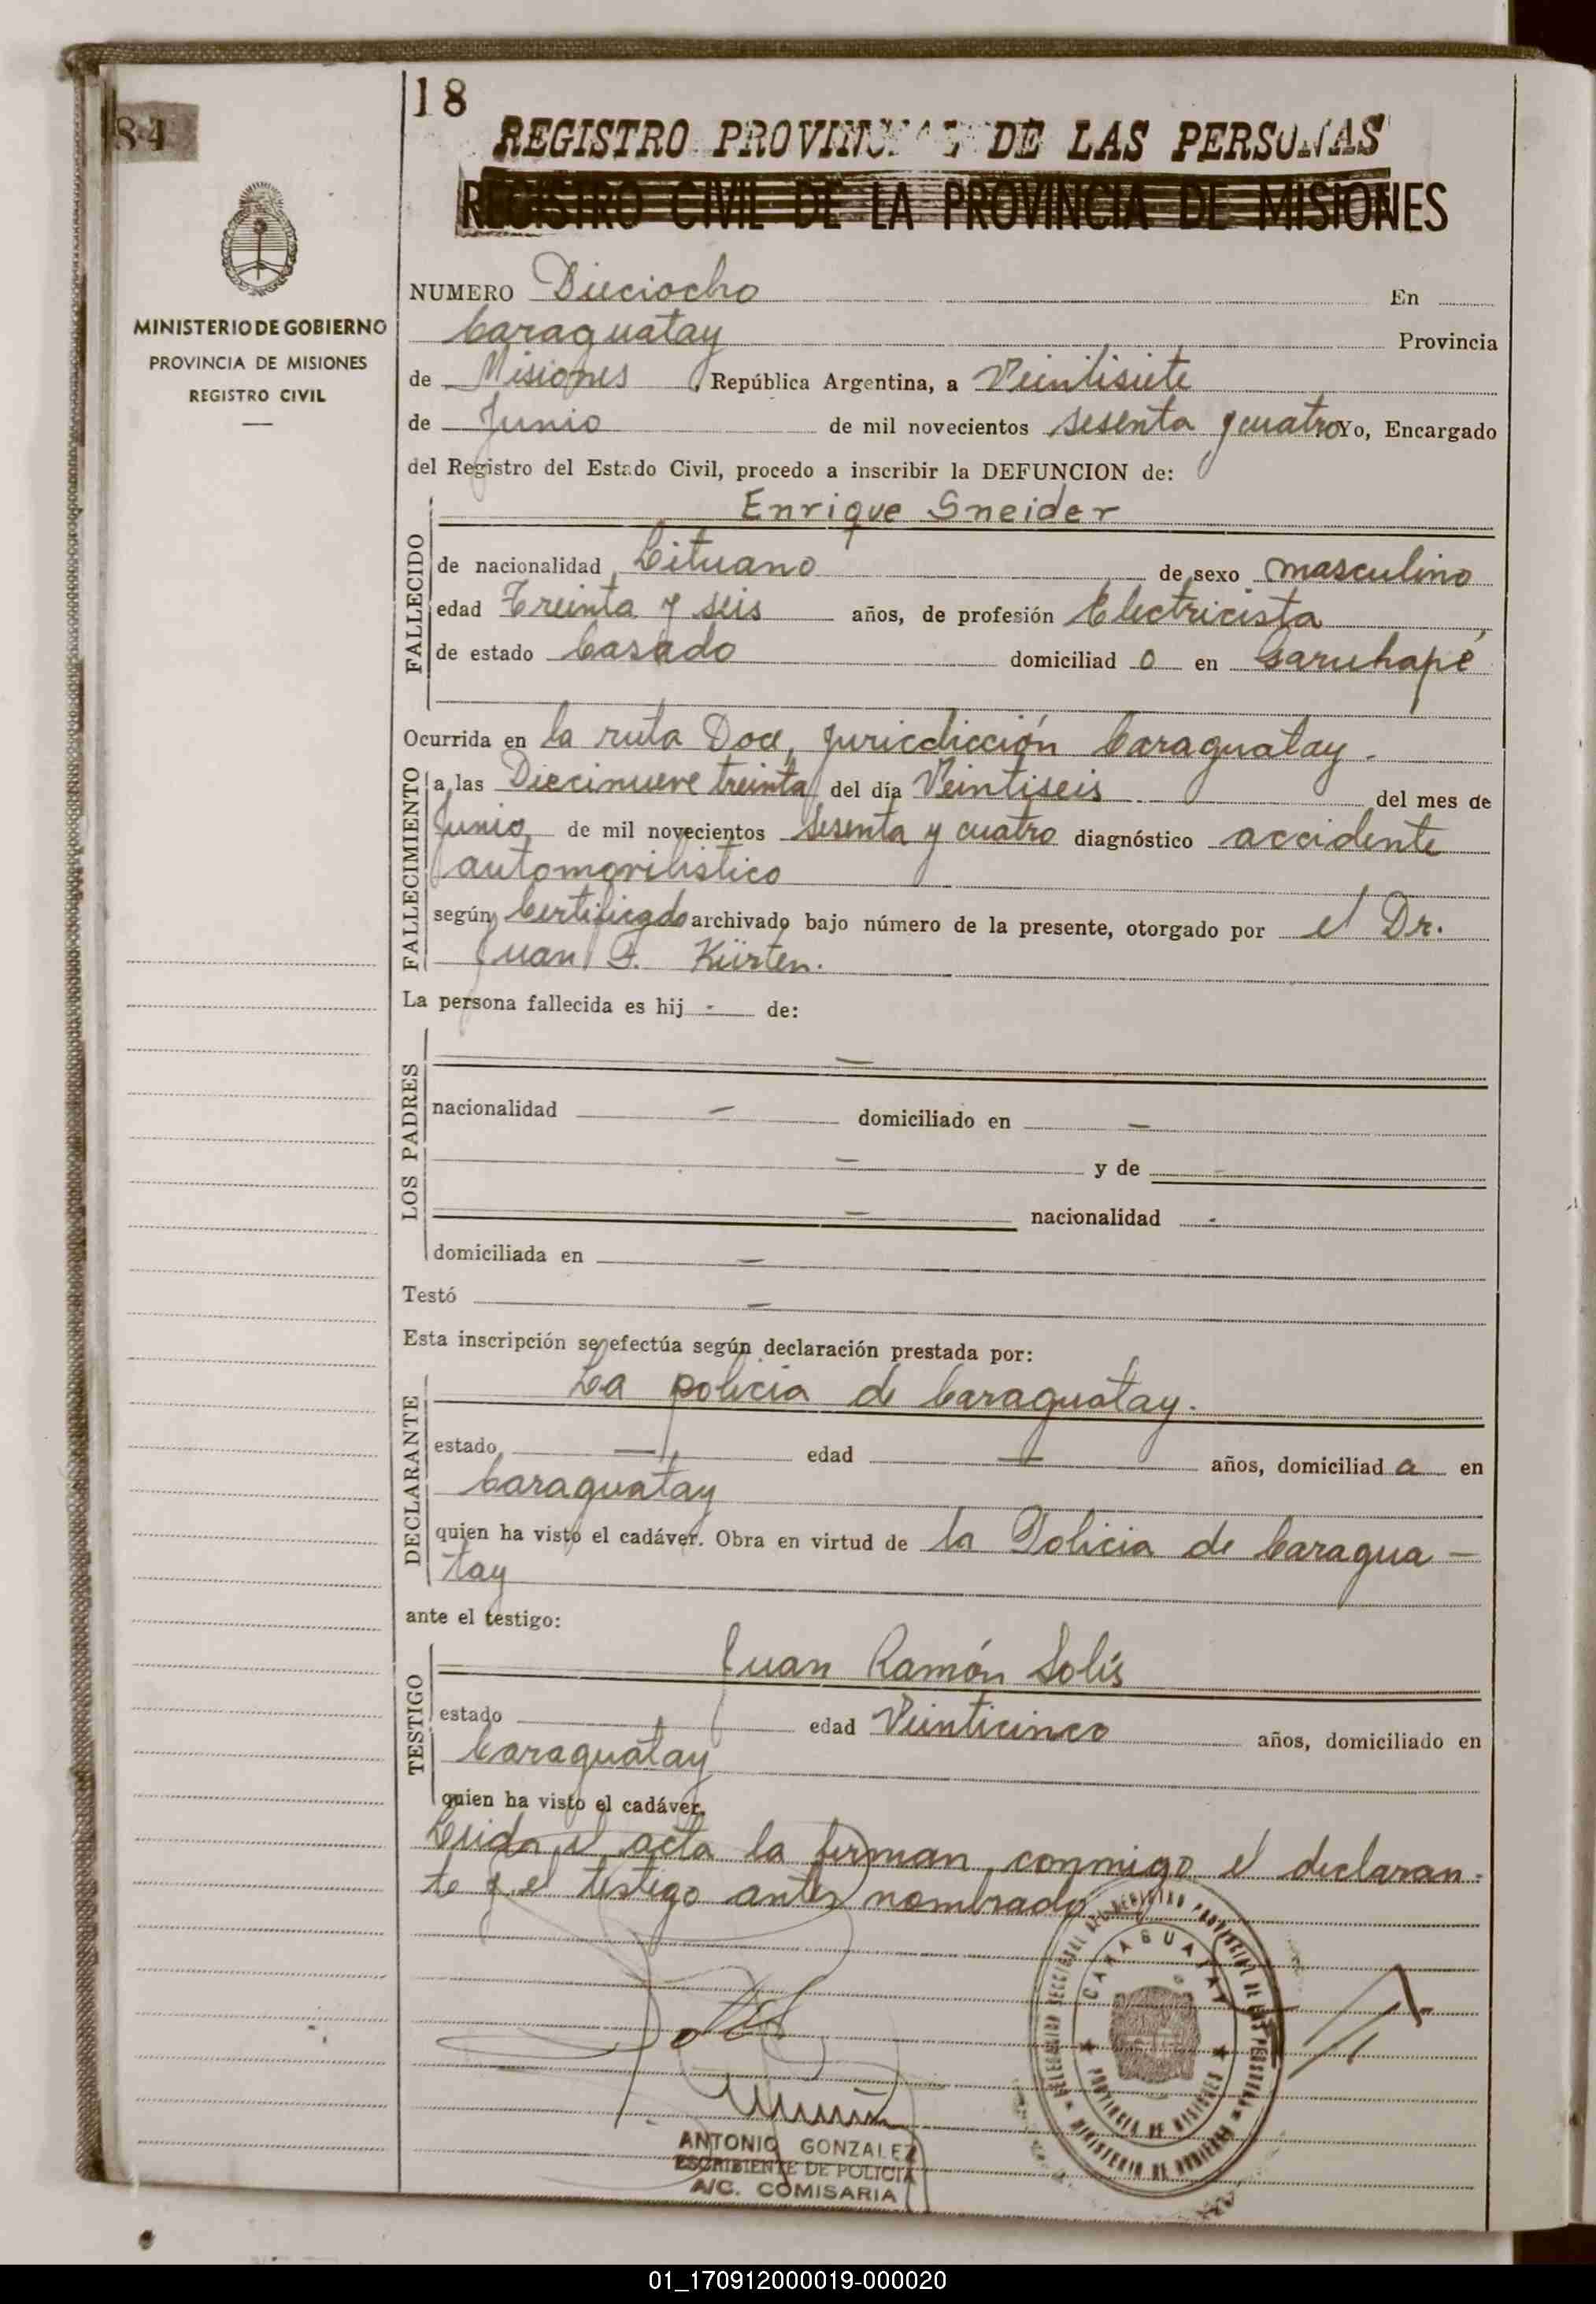 84
18
REGISTRO PROVINCIAL DE LAS PERSONAS
REGISTRO CIVIL DE LA PROVINCIA DE MISIONES
MINISTERIO DE GOBIERNO
PROVINCIA DE MISIONES
REGISTRO CIVIL
NUMERO Dieciocho En
Caraguatay Provincia
de Misiones, República Argentina, a Veintisiete
de Junio de mil novecientos sesenta y cuatro Yo, Encargado
del Registro del Estado Civil, procedo a inscribir la DEFUNCION de:
Enrique Sneider
FALLECIDO
de nacionalidad Lituano de sexo masculino
edad Treinta y seis años, de profesión Electricista
de estado Casado domiciliad o en Garuhapé
Ocurrida en la ruta Doce, juricdicción Caraguatay.
FALLECIMIENTO
a las Diecinueve treinta del día Veintiseis del mes de
Junio de mil novecientos sesenta y cuatro diagnóstico accidente
automovilistico
según Certificado archivado bajo número de la presente, otorgado por el Dr.
Juan Kürten.
La persona fallecida es hij - de:
LOS PADRES
—
nacionalidad — domiciliado en —
— y de -
— nacionalidad -
domiciliada en —
Testó —
Esta inscripción se efectúa según declaración prestada por:
DECLARANTE
La policia de Caraguatay.
estado — edad — años, domiciliad a en
Caraguatay
quien ha visto el cadáver. Obra en virtud de la Policia de Caragua-
tay
ante el testigo:
TESTIGO
Juan Ramón Solís
estado edad Veinticinco años, domiciliado en
Caraguatay
quien ha visto el cadáver.
Leida el acta la firman conmigo el declaran-
te y el testigo antes nombrado
CARAGUATAY
PROVINCIA DE MISIONES
MINISTERIO DE GOBIERNO
ANTONIO GONZALEZ
ESCRIBIENTE DE POLICIA
A/C. COMISARIA
01_170912000019-000020